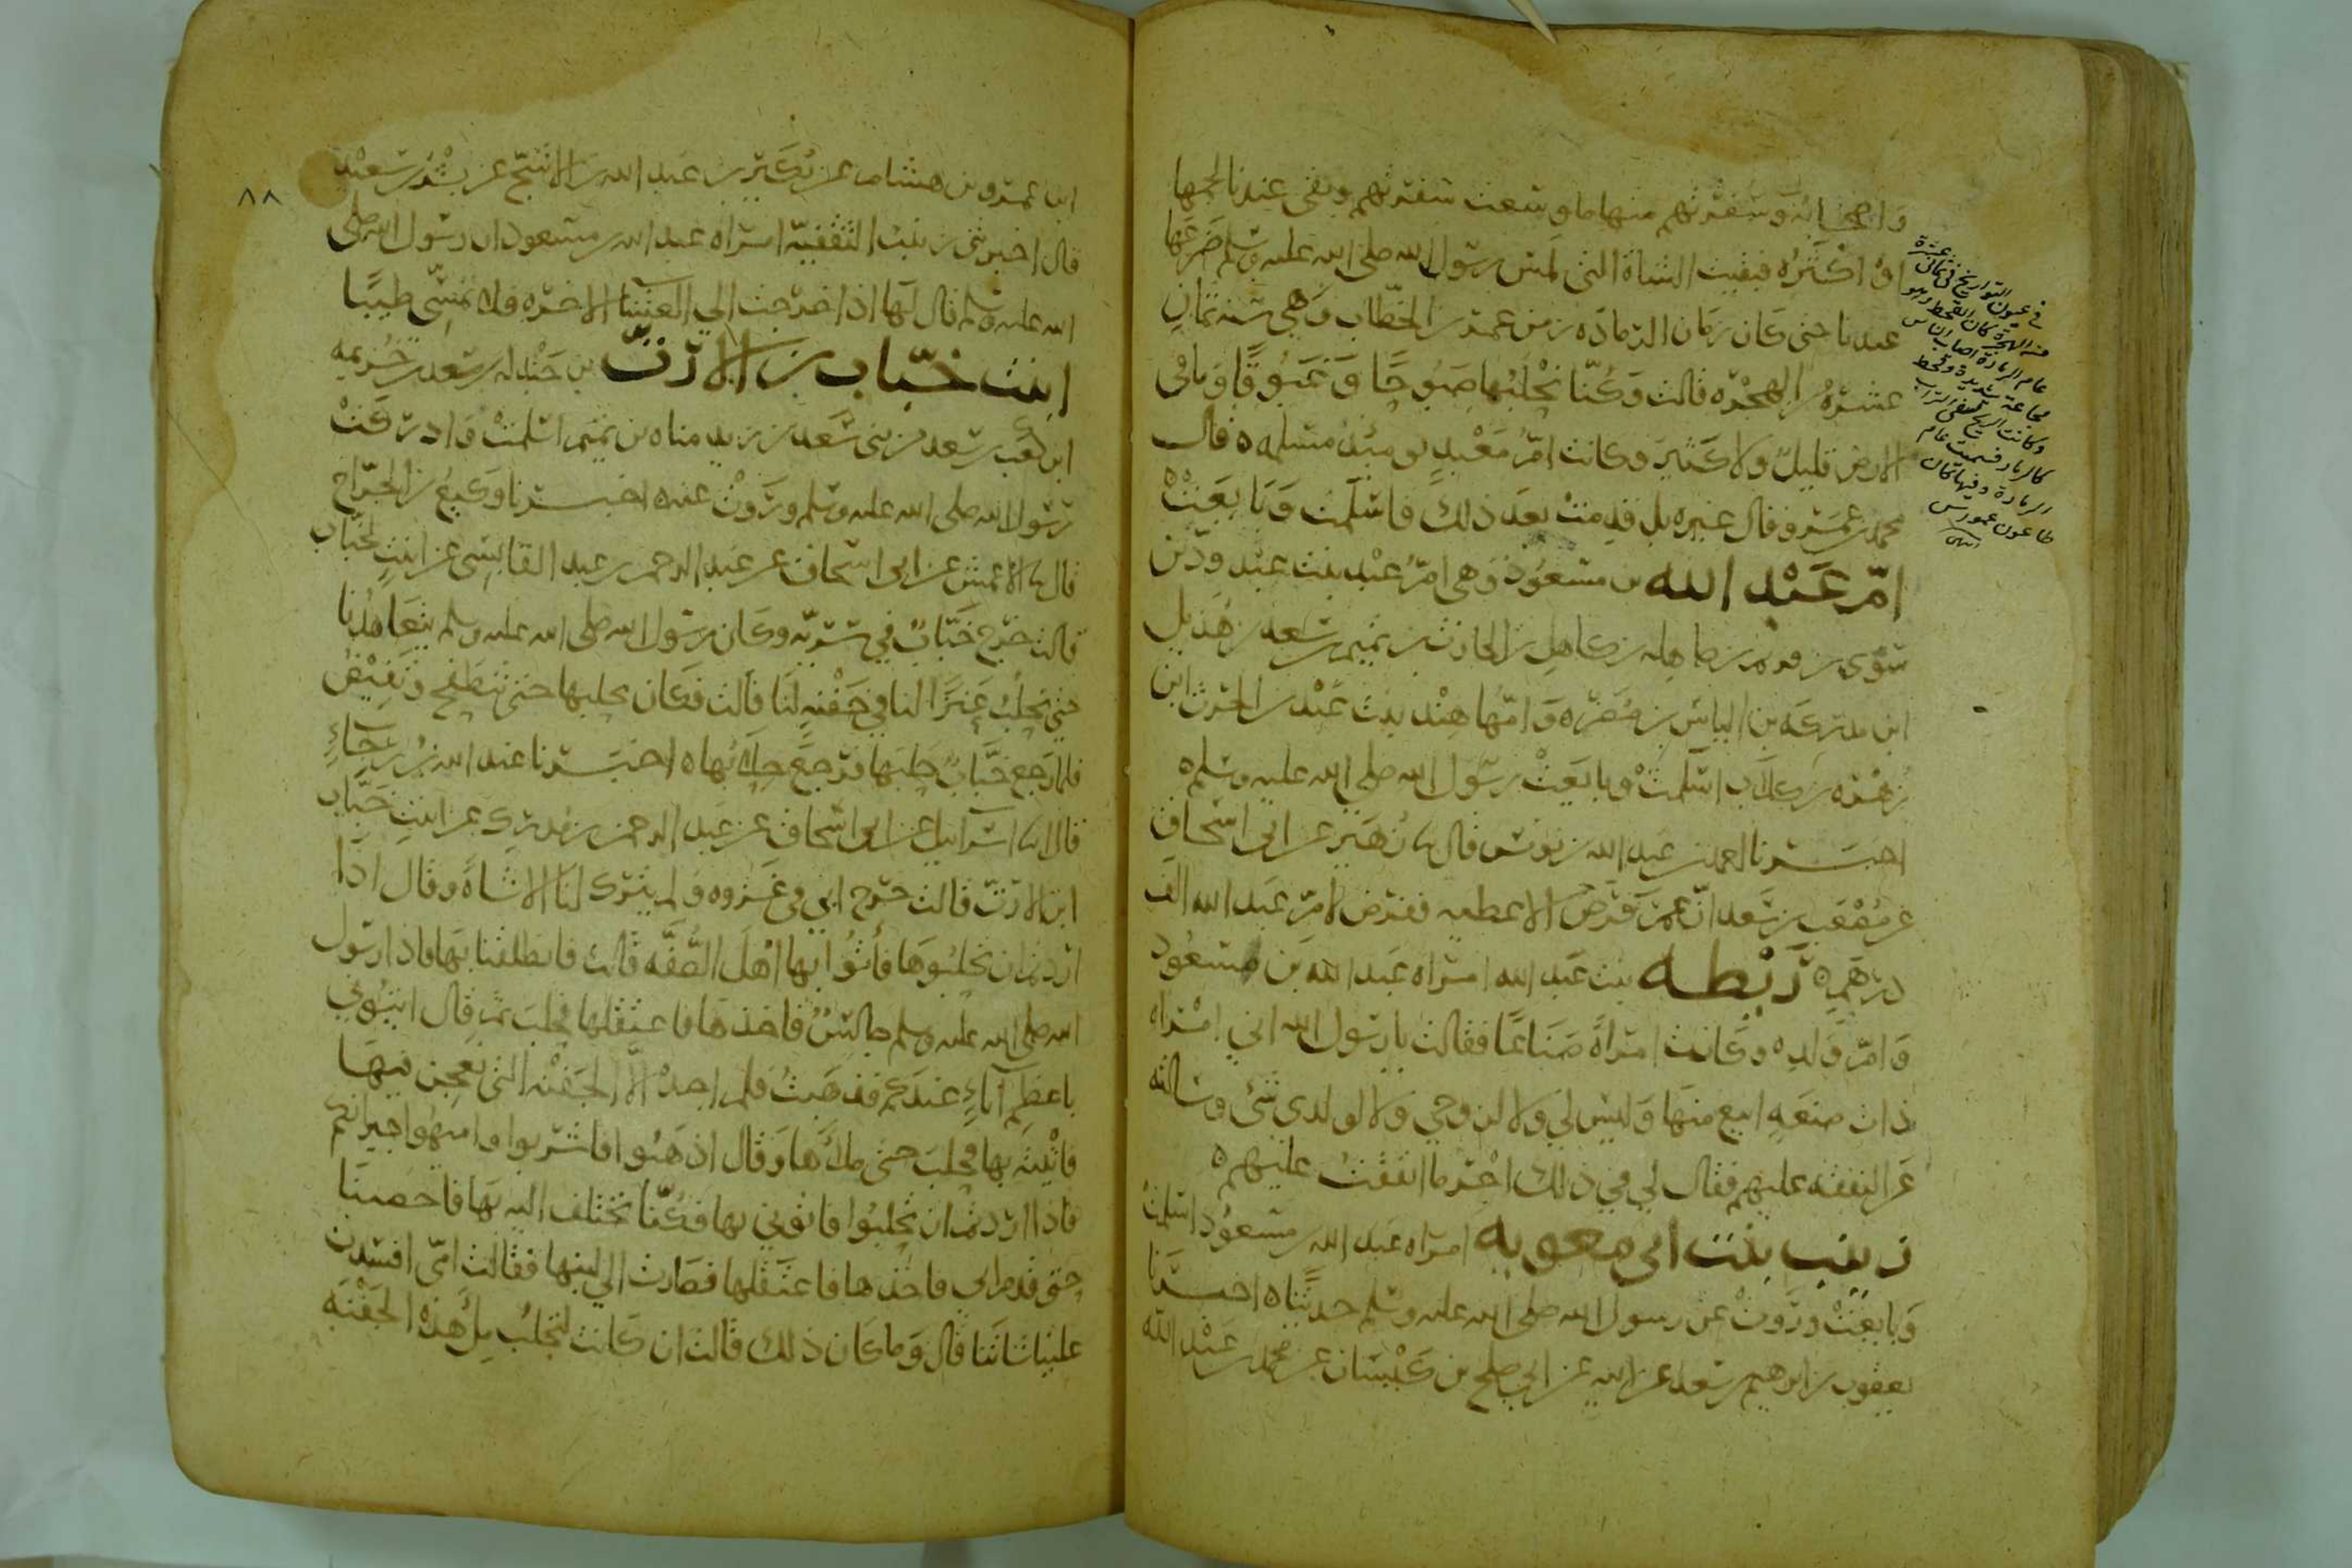 واصحابه وسفرتهم منها ما وسعت سفرتهم وبقي عندنا لحمها
او اكثره فبقيت الشاة التي لمس رسول الله صلى الله عليه وسلم ضرعها
عندنا حتى كان زمان الرماده زمن عمر بن الخطاب وهي سنه ثمان
عشره من الهجره قالت وكنا نحلبها صبوحا وغبوقا وما في
الارض قليل ولا كثير وكانت ام معبد يومئذ مسلمه ه قال
محمد بن عمر وقال غيره بل قدمت بعد ذلك فاسلمت وبايعت
ام عبد الله بن مسعود وهي ام عبد بنت عبد ود بن
سوى بن قريم بن صاهله بن كاهل بن الحارث بن تميم بن سعد بن هذيل
ابن مدركه بن الياس بن مضر ه وامها هند بنت عبد بن الحرث ابن
زهره بن كلاب اسلمت وبايعت رسول الله صلى الله عليه وسلم ه
اخبرنا احمد بن عبد الله بن يونس قال نا زهير عن ابي اسحاق
عن مصعب بن سعد ان عمر فرض الاعطيه ففرض لام عبد الله الف
درهم ه ريطه بنت عبد الله امراه عبد الله بن مسعود
وام ولده وكانت امرأه صناعا فقالت يا رسول الله اني امراه
ذات صنعه ابيع منها وليس لي ولا لزوجي ولا لولدي شئ وسالته
عن النفقه عليهم فقال لي في ذلك اجر ما انفقت عليهم ه
زينب بنت ابي معويه امراه عبد الله بن مسعود اسلمت
وبايعت وروت عن رسول الله صلى الله عليه وسلم حديثا ه اخبرنا
يعقوب بن ابرهيم بن سعد عن ابيه عن صلح بن كيسان عن محمد بن عبد الله
في عيون التواريخ في ثمان عشرة
من الهجرة كان القحط وهو
عام الرمادة اصاب الناس
مجاعة شديدة وقحط
وكانت الريح تسفي التراب
كالرماد فسميت عام
الرمادة وفيها كان
طاعون عمواس
انتهى
٨٨
ابن عمرو بن هشام عن بكير بن عبد الله بن الاشج عن بسر بن سعيد
قال اخبرتني زينب الثقفيه امراه عبد الله بن مسعود ان رسول الله صلى
الله عليه وسلم قال لها اذا خرجت الى العشا الاخره فلا تمسي طيبا
ابنت خباب بن الارت بن جندله بن سعد بن خزيمه
ابن كعب بن سعد من بني سعد بن زيد مناه بن تميم اسلمت وادركت
رسول الله صلى الله عليه وسلم وروت عنه ه اخبرنا وكيع بن الجراح
قال نا الاعمش عن ابي اسحاق عن عبد الرحمن بن عبد القايشي عن ابنت لخباب
قالت خرج خباب في سريه وكان رسول الله صلى الله عليه وسلم يتعاهدنا
حتى يحلب عنزا لنا في جفنه لنا قالت فكان يحلبها حتى تطفح وتفيض
فلما رجع خباب حلبها فرجع حلابها ه اخبرنا عبد الله بن رجاء
قال انا اسرائيل عن ابي اسحاق عن عبد الرحمن بن مدرك عن ابنت خباب
ابن الارت قالت خرج ابي في غزوه ولم يترك لنا الا شاة وقال اذا
اردتم ان تحلبوها فأتوا بها اهل الصفه قالت فانطلقنا بها فاذا رسول
الله صلى الله عليه وسلم جالس فاخذها فاعتقلها فحلب ثم قال ايتوني
باعظم اناء عندكم فذهبت فلم اجد الا الجفنه التي نعجن فيها
فاتيته بها فحلب حتى ملأها وقال اذهبوا فاشربوا وامنهوا جيرانكم
فاذا اردتم ان تحلبوا فاتوني بها فكنا نختلف اليه بها فاخصبنا
حتى قدم ابي فاخذها فاعتقلها فصارت الى لبنها فقالت امي افسدت
علينا شاتنا قال وما كان ذلك قالت ان كانت لتحلب ملء هذه الجفنه